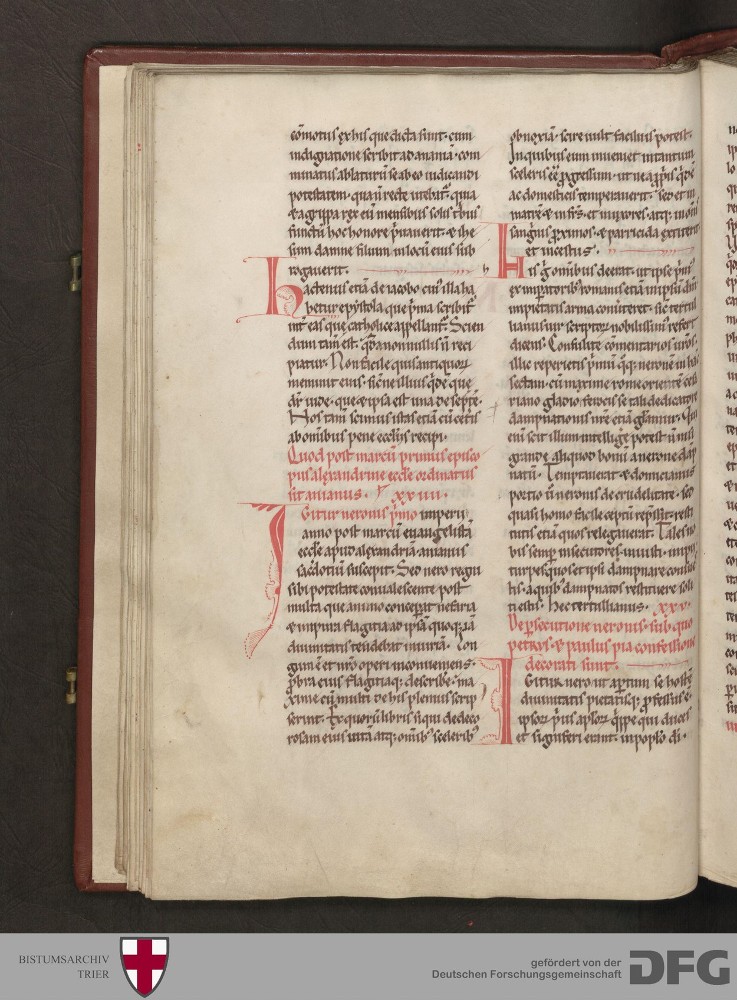 cōmotus ex his que dicta sunt· cum
indignatione scribit ad ananiā· com
minatus ablaturū se ab eo iudicandi
potestatem· qua nō recte utebat᷑· quia
& agrippa rex eū mensibus solis tribus
functū hoc honore p̄uauerit· & ihe
sum damnei filium in locū eius sub
rogauerit·
Hactenus etiā de iacobo cui᷒ illa ha
betur epystola que p̄ma scribit᷑
int̄ eas que catholice appellant᷑· Scien
dum tam̄ est· qd̄ a nonnullis n̄ reci
piatur· Non facile quis antiquorū
meminit eius· sic ne illius q̄de que
dr̄ iude· que & ipsa est una de septē·
Nos tam̄ scimus istas etiā cū cet̄is
ab omnibus pene eccl̄iis recipi·
Quod post marcū primus episco
pus alexandrine eccl̄e ordinatus
sit anianus· xxiiii·
Igitur neronis p̄mo imperii
anno post marcū euuangelistā
eccl̄e apud alexandriā anianus
sacerdotiū suscepit· Sed nero regni
sibi potestate conualescente post
multa que animo conceperat nefaria
& impura flagitia ad ipsā quoq; iā
diuinitatis tendebat iniuriā· Lon
gum ē et nr̄o operi inconueniens·
p̄bra eius flagitiaq; describere· ma
xime cū multi de his plenius scrip
serint· Ex quorū libris si qui dedeco
rosam eius uitā atq; om̄ib᷒ sceleribᷤ
obnoxiā· scire uult facillius potest·
In quibus eum inueniet in tantum
sceleris ēē ꝓgressum· ut ne a ꝓp̄is q̄de
ac domesticis temperauerit· sed et in
matrē & in frs̄· et in uxores· atq; in om̄i
sanguis ꝓximos· & parricida extiterit
et incestus·
His g̊ omnibus deerat· ut ipse p̄mus
ex imperatorib᷒ romanis etiā in ipsū dm̄
impietatis arma conuerteret· sic̄ tertul
lianus uir scriptorū nobilissim᷒ refert
dicens· Consulite cōmentarios ur̄os·
illic reperietis p̄mū q̄q; neronē in hac
sectam· cū maxime rome oriente cesa
riano gladio ferocis se tali dedicatore
dampnationis nr̄e etiā gl̄amur· Qui
eni scit illum intelligere potest n̄ nisi
grande aliquod bonū a nerone dāp
natū· Temptauerat & domicianus
portio n̄ neronis de crudelitate· sed
quasi homo facile ceptū rep̄ssit· resti
tutis etiā quos relegauerat· Tales no
bis semp insecutores· iniusti· impii·
turpes· quos et ipsi dampnare consue
tis· a quib᷒ dampnatos restituere soli
ti estis· Hec tertullianus· xxv·
De ꝑsecutione neronis· sub quo
petrus· & paulus pia confessione
decorati sunt·
Igitur nero ut apertum se hostē
diuinitatis pietatisq; ꝓfessus ē·
ipsorū p̄us aplōrū q̄ppe qui duces
et signiferi erant· in populo di·
BISTUMSARCHIV
TRIER
gefördert von der
Deutschen Forschungsgemeinschaft
DFG